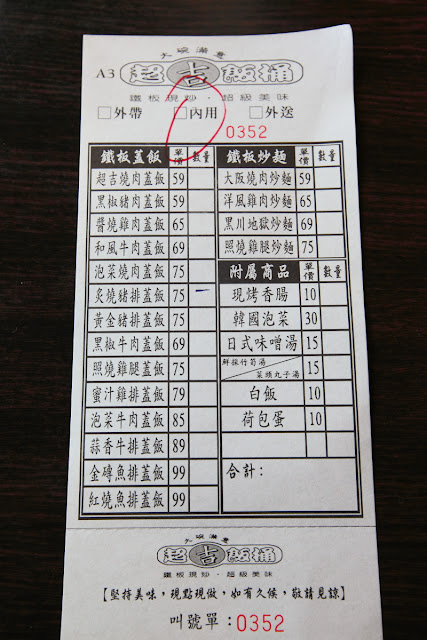 大碗滿意
A3 超吉飯桶
鐵板現炒・超級美味
□外帶 □內用 □外送
0352
鐵板蓋飯 單價 數量
超吉燒肉蓋飯 59
黑椒豬肉蓋飯 59
醬燒雞肉蓋飯 65
和風牛肉蓋飯 69
泡菜燒肉蓋飯 75
炙燒豬排蓋飯 75 一
黃金豬排蓋飯 75
黑椒牛肉蓋飯 69
照燒雞腿蓋飯 75
蜜汁雞排蓋飯 79
泡菜牛肉蓋飯 85
蒜香牛排蓋飯 89
金磚魚排蓋飯 99
紅燒魚排蓋飯 99
鐵板炒麵 單價 數量
大阪燒肉炒麵 59
洋風雞肉炒麵 65
黑川地獄炒麵 69
照燒雞腿炒麵 75
附屬商品 單價 數量
現烤香腸 10
韓國泡菜 30
日式味噌湯 15
鮮採竹筍湯/菜頭丸子湯 15
白飯 10
荷包蛋 10
合計：
大碗滿意
超吉飯桶
鐵板現炒・超級美味
【堅持美味，現點現做，如有久候，敬請見諒】
叫號單：0352